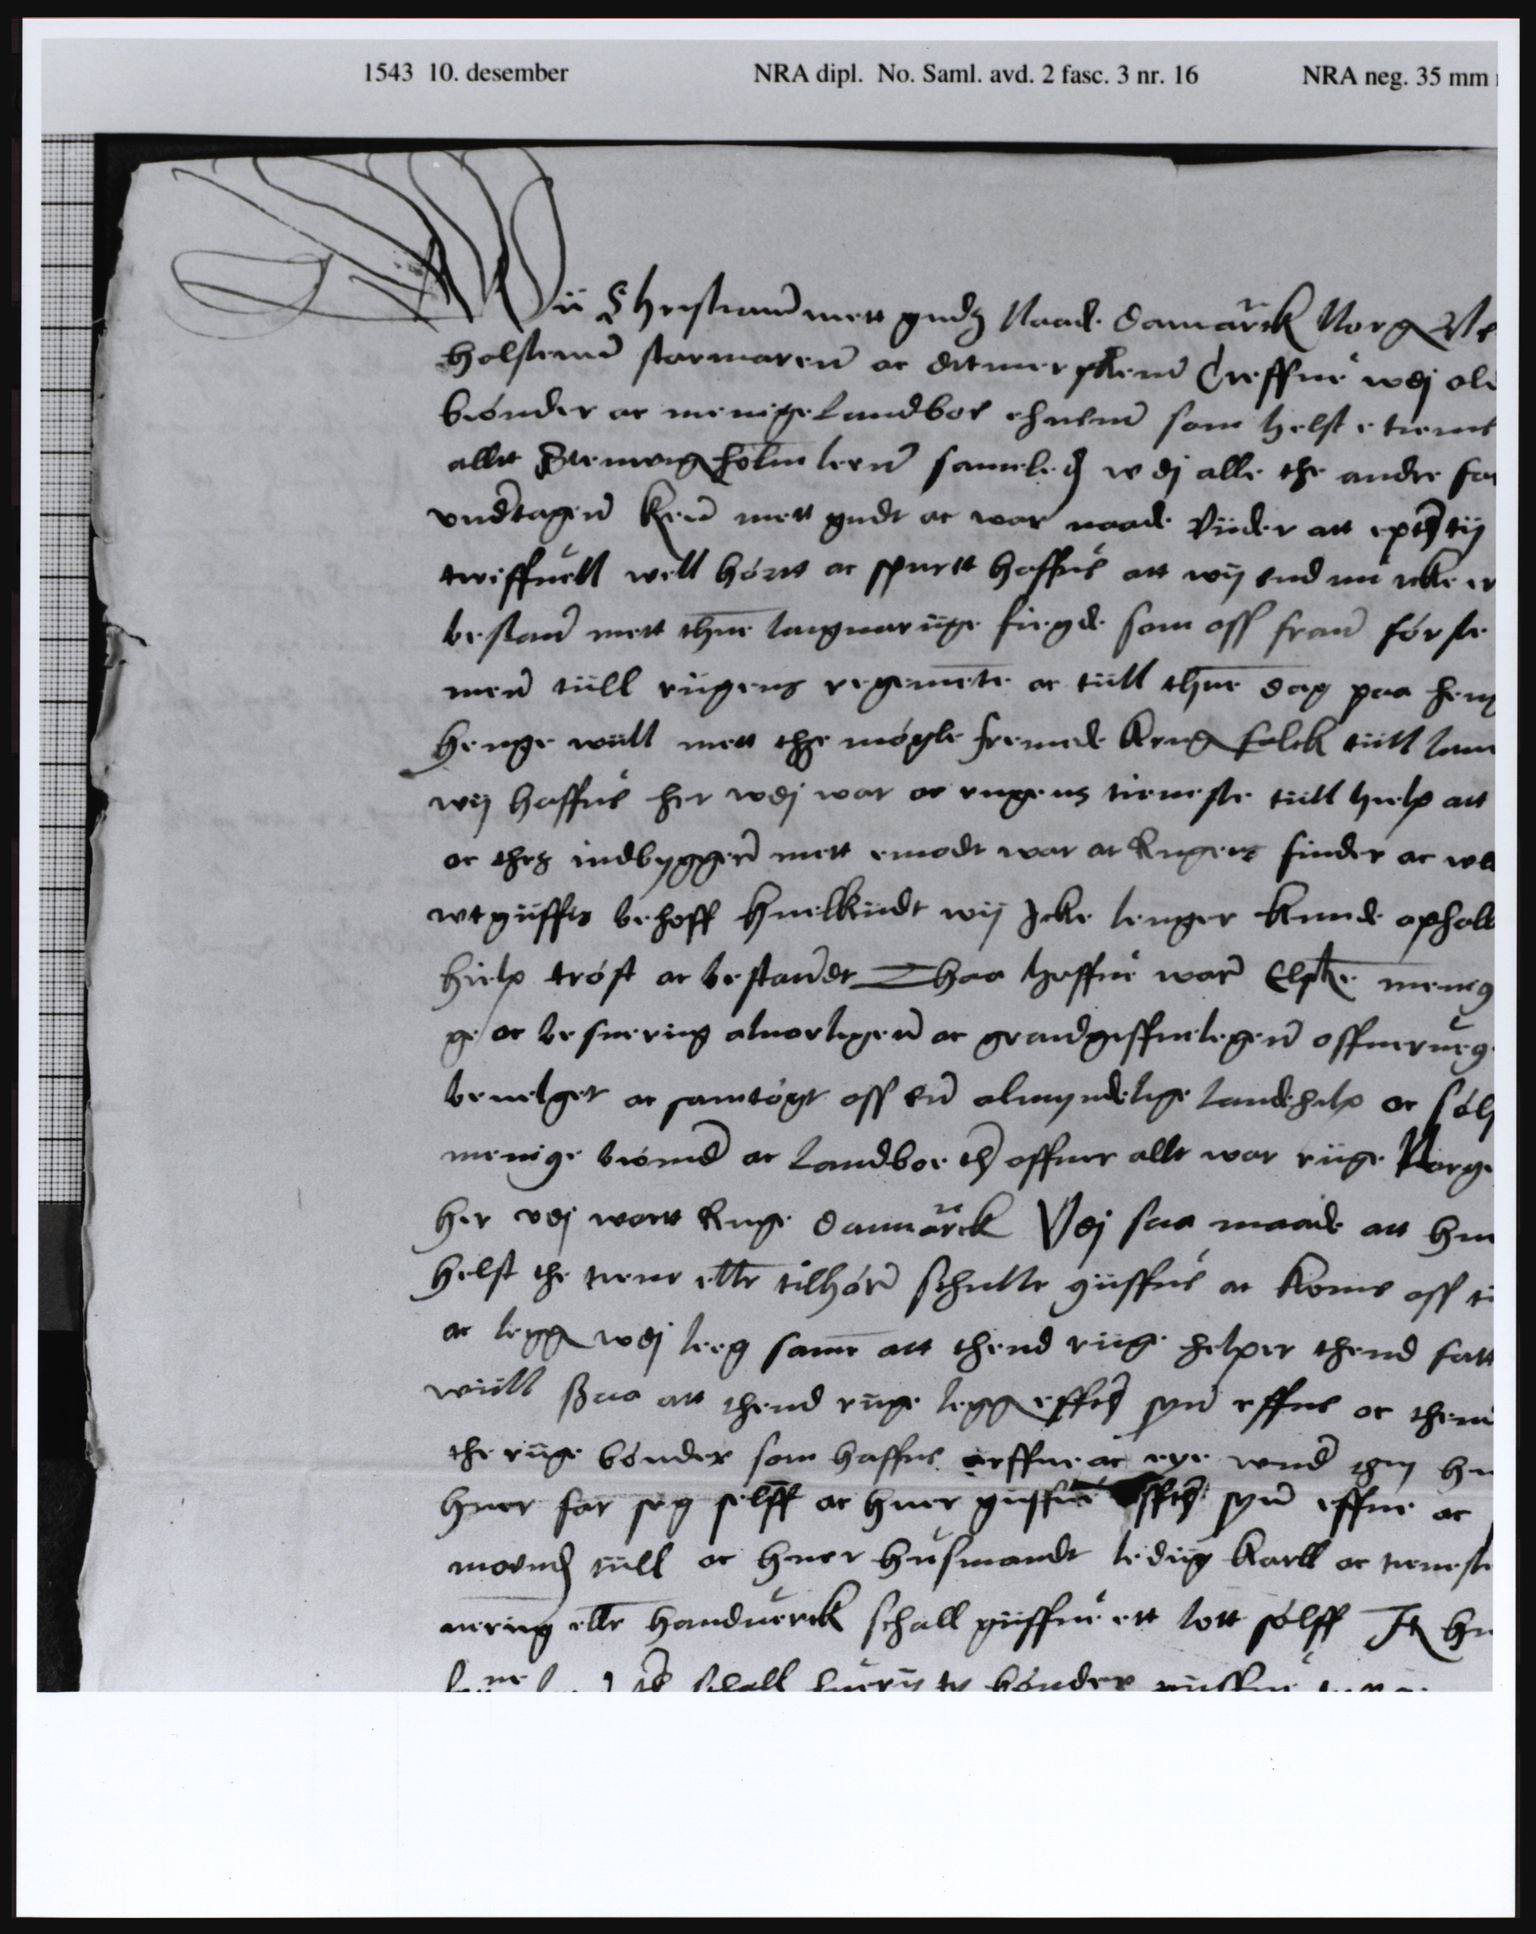 1543 10. desember NRA dipl. No. Saml. avd. 2 fasc. 3 nr. 16 NRA neg. 35 mm
Wii Christiann mett gudz Naade Danmarck Norg
holstenn stormarenn oc ditmerskenn Greffue wdj old
biónder oc menige Landboe ehuem som helst e tiene
allt Stenwigholm leen wdj alle the andre
vndtagenn Kenn mett gudt oc wor naade Viider att epther tij
twiffuell well hórtt oc spurtt haffue att wij end nu icke er
bestann mett thne langnariige fiegde som oss frann fórste
menn tiill riigens regemete oc tiill thne dag paa heng
henge wiill mett the fremede Krigfolck tiill lan
wij haffue her wdj wor oc rigens tieneste tiill hielp att
oc thes indbyggere mett emodt wor oc Rigens finder oc
wtgiiffts behoff huelkiidt wij Icke lenger Kunde ophold
hielp tróst oc bestandt Thaa haffue wore Elske menig
ge oc besuering aluorligenn oc grandgiffueligenn offueru
beuelget oc samtógt oss enn almyndelige landehielp oc sólf
menige biónder oc Landboe offuer allt wor riige Norge
her vdj wortt Rige Danmarck Vdj saa maade att hu
helst the tiene elle tilhóre schulle giiffue oc Kome oss ti
oc legg wdj leeg same att thend riige helper thend fatt
wiill Saa att thend riige legg effter synn effne oc them
the riige bónder som haffue arffue oc eye wnd hu
huer for seg selff oc huer giiffue effther synn effne oc
tiill oc huer husmandt lediig Karll oc tienest
nering elle handuerck schall giiffue ett lott sólff It hu
schall huer bónder giiffue